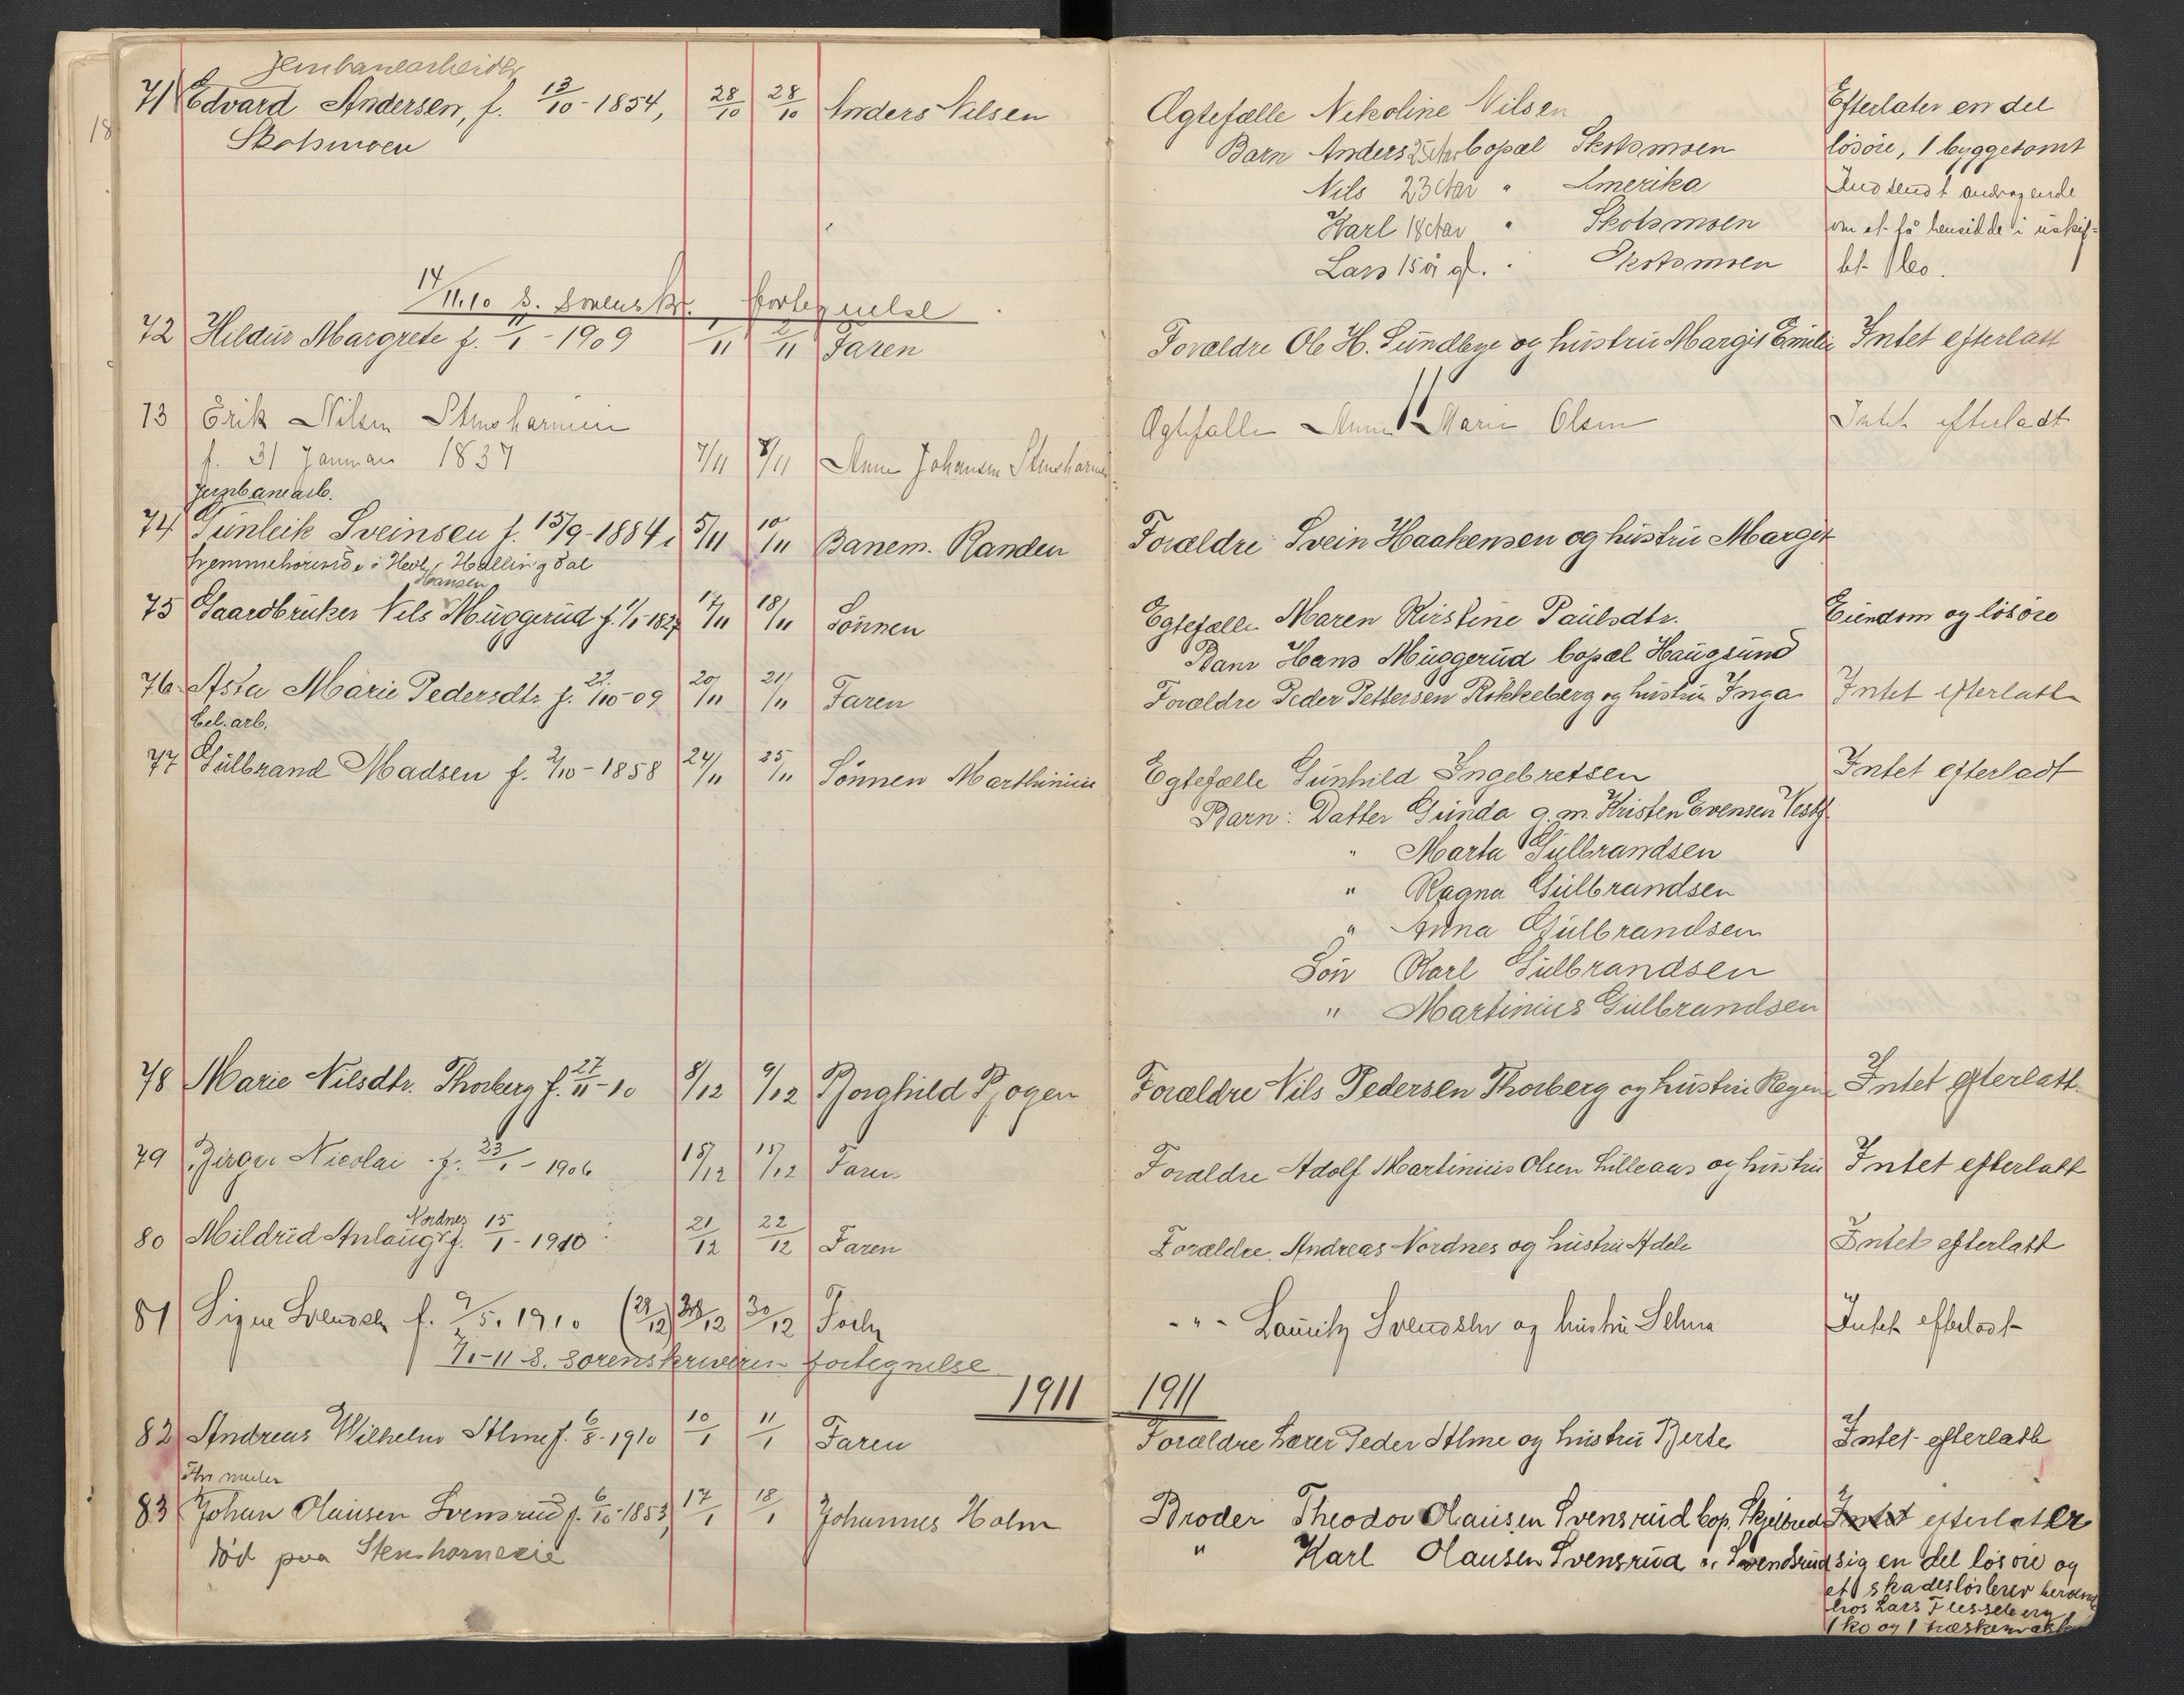 Jernbanearbeider
71 Edvard Andersen, f. 13/10 - 1854, 28/10 28/10 Anders Nilsen
Skotsmoen
Ægtefælle Nekoline Nilsen
Barn Anders 25 aar bopæl Skotsmoen
Nils 23 aar " Amerika
Karl 18 aar " Skotsmoen
Lars 15 år gl. " Skotsmoen
Efterlater en del
løsøre, 1 byggetomt
Indsendt andragende
om at få hensidde i uskif-
tet bo.
14/11.10 s. Sorenskr. fortegnelse
72 Hildur Margrete f. 11/1 - 1909 1/11 2/11 Faren
Forældre Ole H. Sundbye og hustru Margit Emilie Intet efterlatt
73 Erik Nilsen Stenshornnin
f. 31 Januar 1837 7/11 8/11 Anne Johansen
Ægtefælle Anne Marie Olsen Intet efterladt
Jernbanearb.
74 Gunleik Sveinsen f. 15/9 - 1884 5/11 10/11 Banem. Randen
hjemmehørende i Hallingdal
Forældre Svein Haakensen og hustru Margit
Hansen
75 Gaardbruker Nils Muggerud f. 1/1 - 1827 17/11 18/11 Sønnen
Egtefælle Maren Kirstine Paulsdtr. Eiendom og løsøre
Barn Hans Muggerud bopæl Haugsund
76 Asta Marie Pedersdtr. f. 22/10 - 09 20/11 21/11 Faren
Forældre Peder Pettersen Rökkeberg og hustru Inga Intet efterlatt
Cel. arb.
77 Gulbrand Madsen f. 2/10 - 1858 24/11 25/11 Sønnen Marthinius
Egtefælle Gunhild Ingebretsen Intet efterladt
Barn: Datter Gunda g. m. Kristen Evensen Vestf.
" Marta Gulbrandsen
" Ragna Gulbrandsen
" Anna Gulbrandsen
Søn Karl Gulbrandsen
" Martinius Gulbrandsen
78 Marie Nilsdtr. Thorberg f. 27/11 - 10 8/12 9/12 Borghild Bogen
Forældre Nils Pedersen Thorberg og hustru Regine Intet efterlatt
79 Birger Nicolai f. 23/1 - 1906 15/12 15/12 Faren
Forældre Adolf Martinius Olsen Lilleaas og hustru Intet efterlatt
Nordnes
80 Mildrid Anlaug f. 15/1 - 1910 21/12 22/12 Faren
Forældre Andreas Nordnes og hustru Adele Intet efterlatt
81 Signe Svendsen f. 9/5. 1910 (28/12) 30/12 30/12
- " - Lauritz Svendsen og hustru Selma Intet efterladt
7/1-11 S. Sorenskriveren fortegnelse
1911 1911
82 Andreas Wilhelm Alme f. 6/8 - 1910 10/1 11/1 Faren
Forældre Lærer Peder Alme og hustru Berte Intet efterlatt
83 Johan Olausen Svensrud f. 6/10 - 1853, 17/1 18/1 Johannes Holm
död paa Stenshorneie
Broder Theodor Olausen Svensrud bop. Skjelbred Intet efterlater
" Karl Olausen Svensrud " Svendsrud sig en del løsøre og
et skadesløsbrev
hos Lars Flesseberg
1 ko og 1